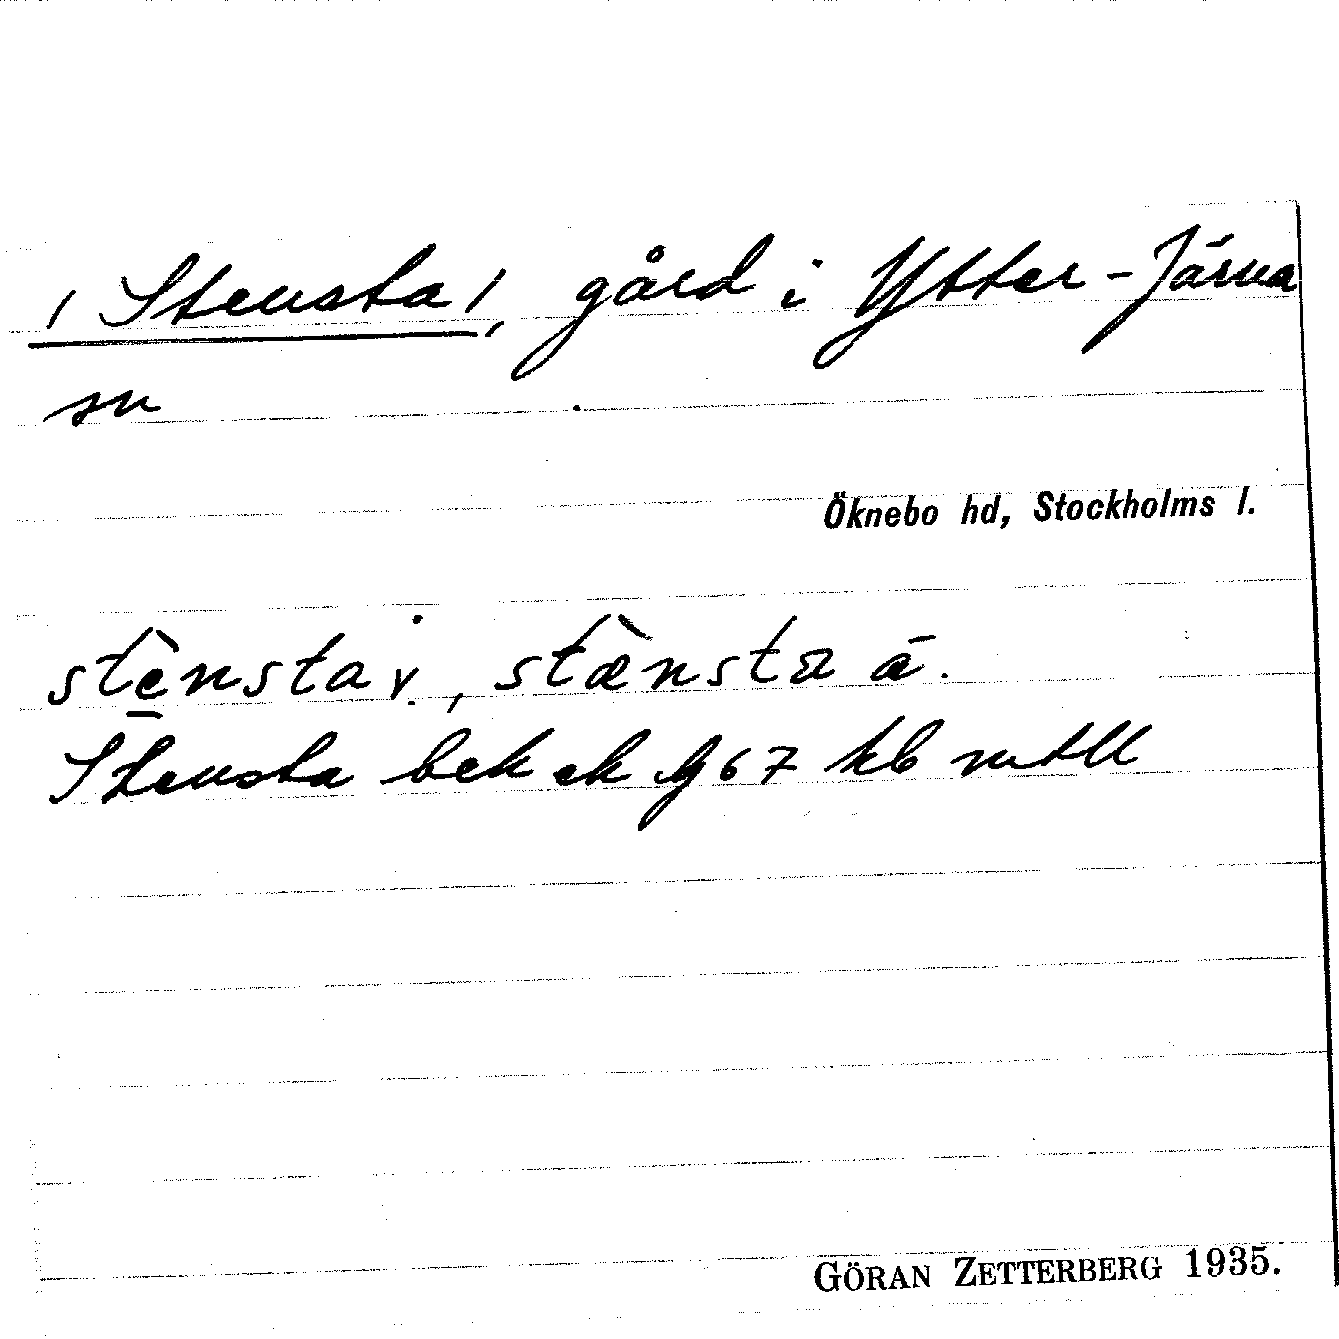 / Stensta /, gård i Ytter-Järna
sn
Öknebo hd, Stockholms l.
stènsta y., stænsta ä.
Stensta bek ek 967 kb mtll
GÖRAN ZETTERBERG 1935.